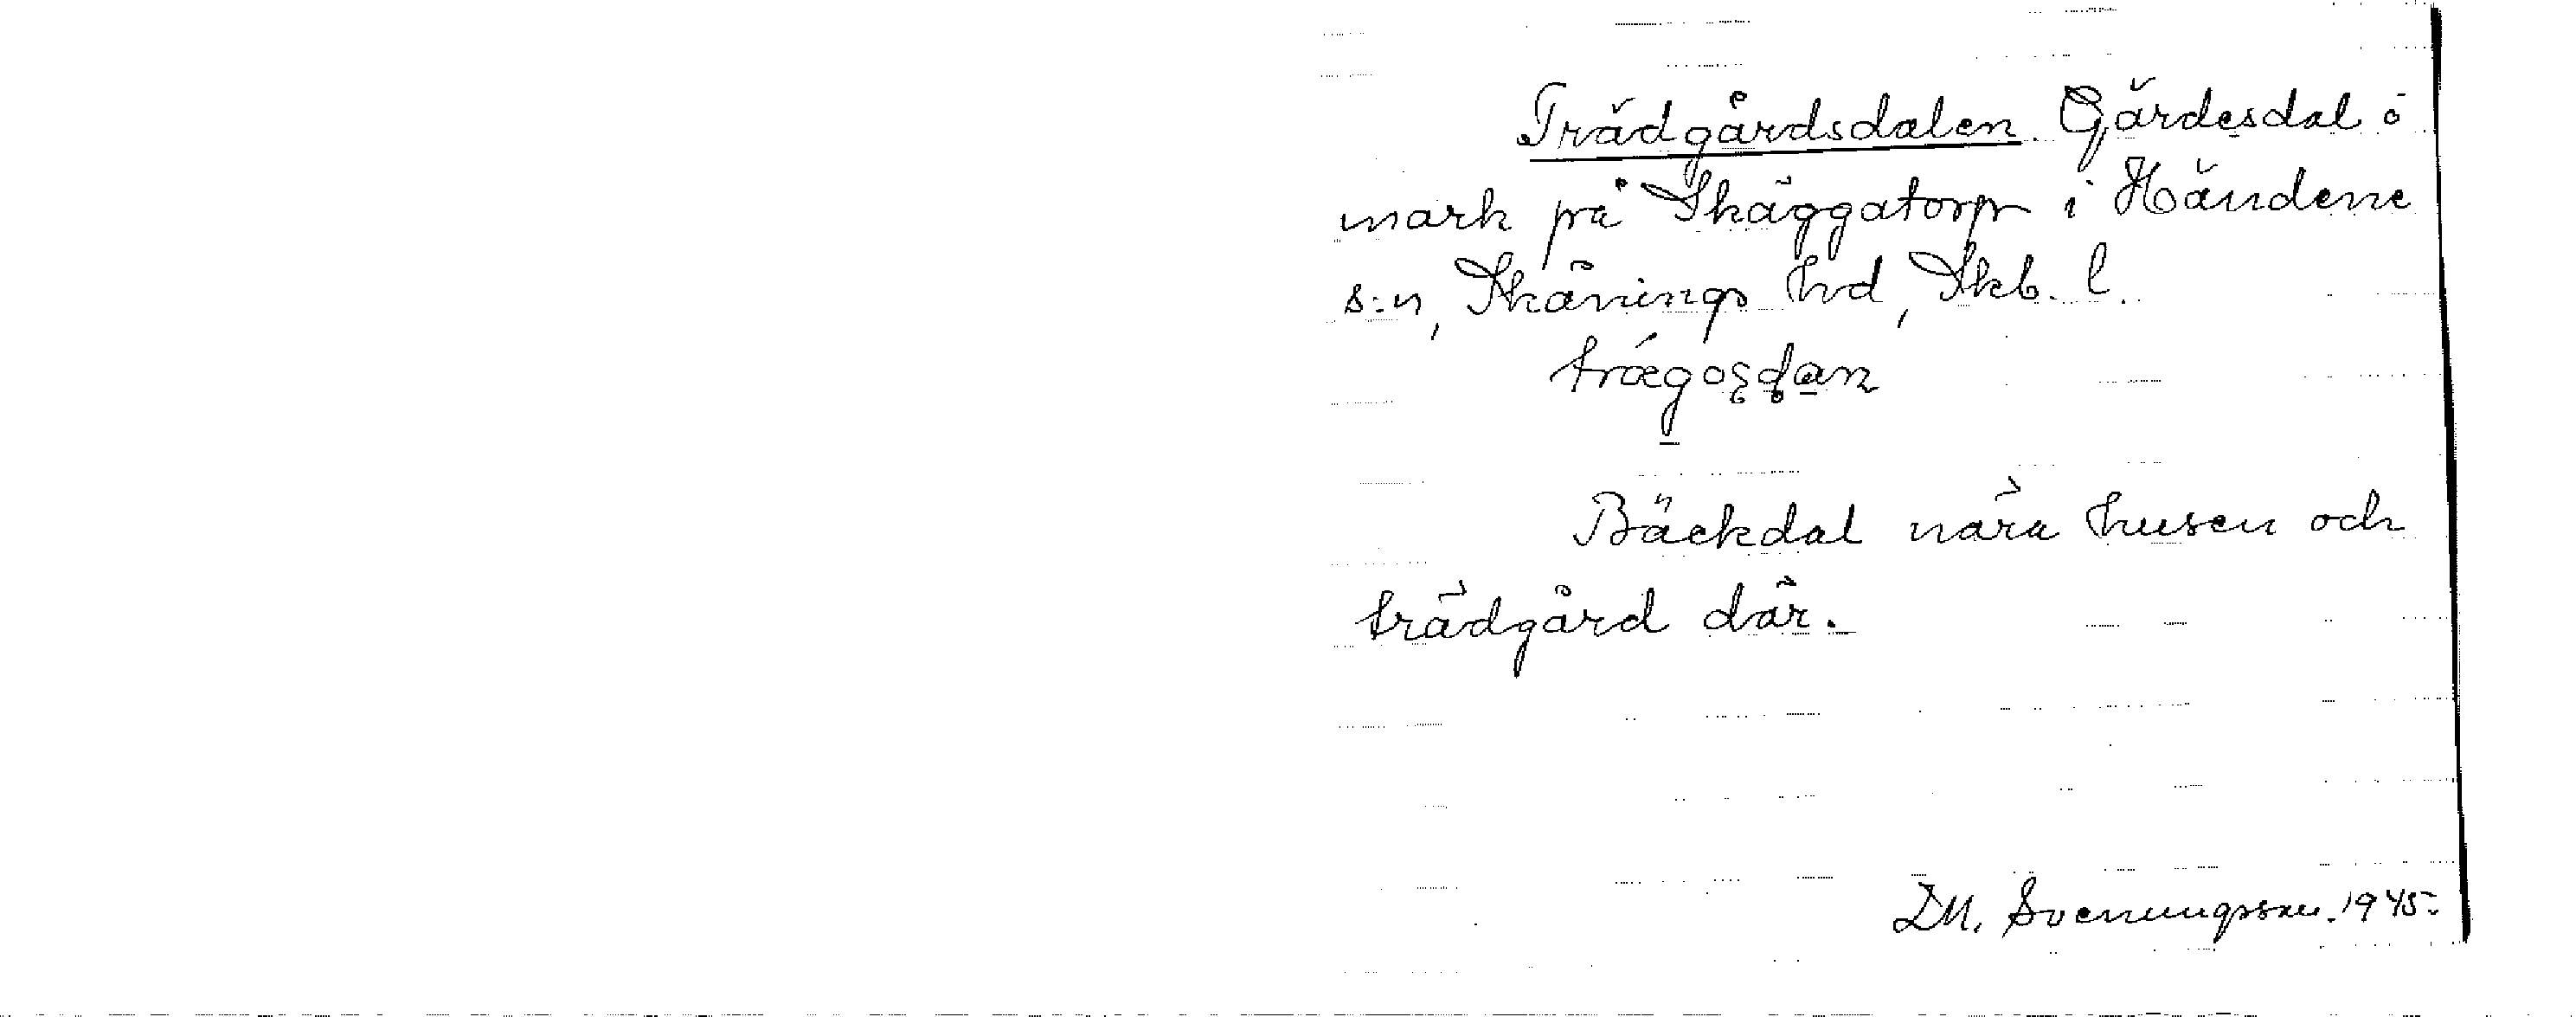 Trädgårdsdalen. Gärdesdal o
mark på Skäggatorp i Händene
s:n, Skånings hd, Skb. l.
Bäckdal nära husen och
trädgård där.
D.M. Svenungsson. 1945.